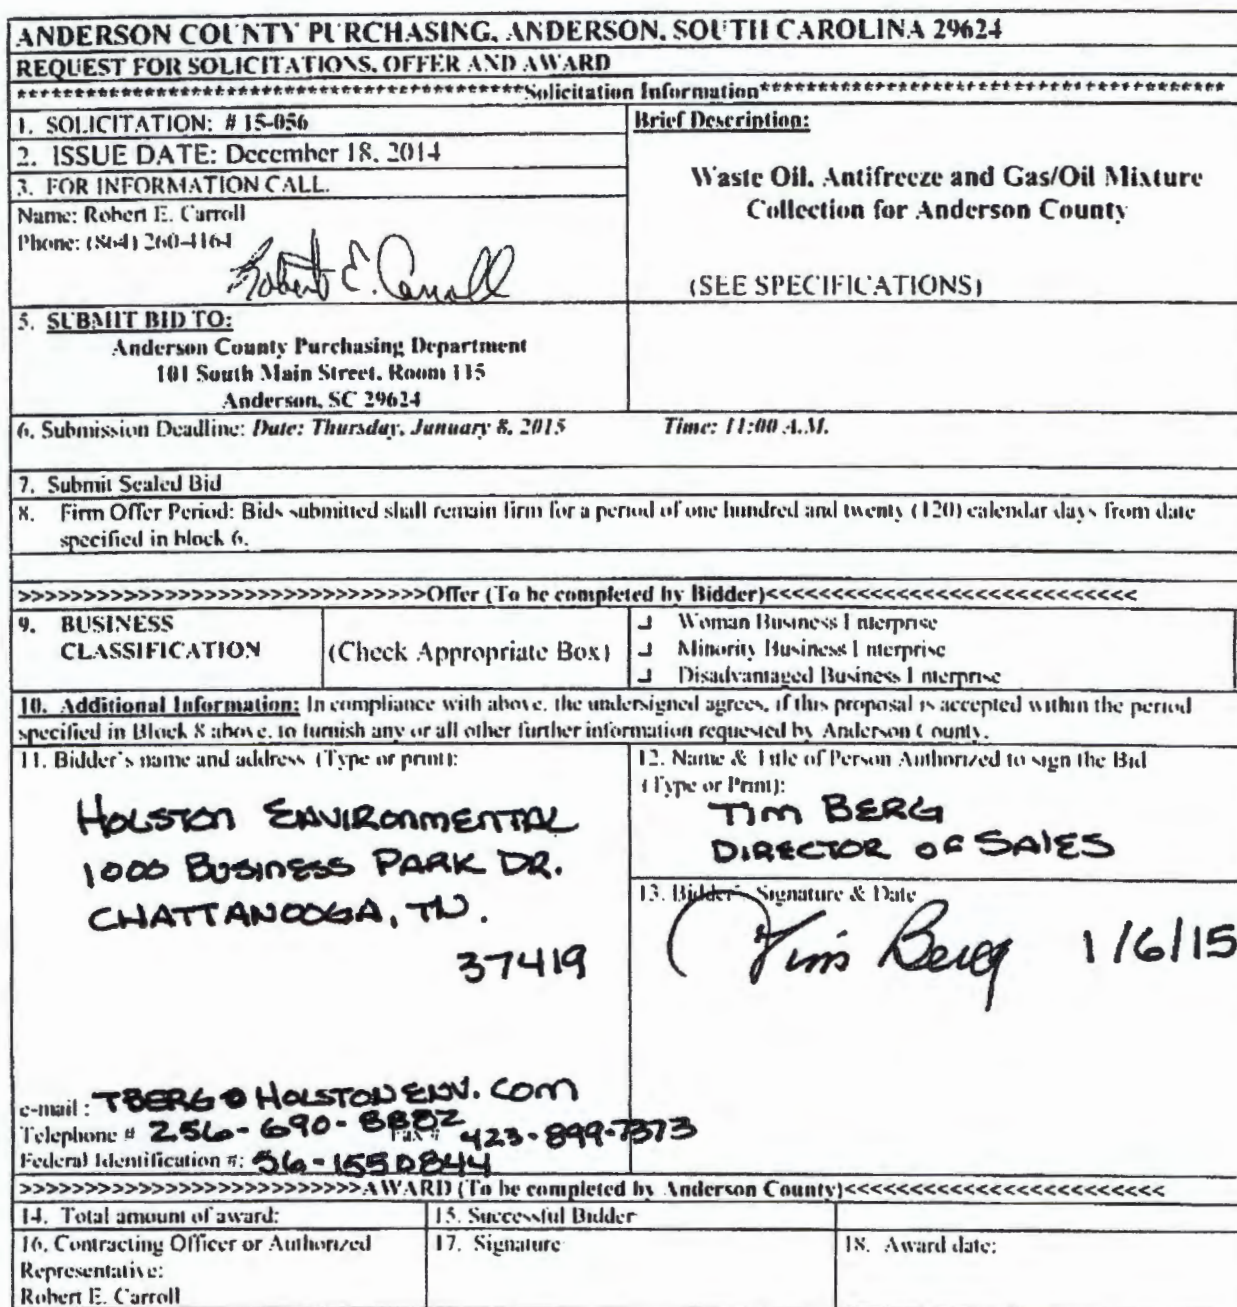 ANDERSON COUNTY PURCHASING, ANDERSON, SOUTH CAROLINA 29624
REQUEST FOR SOLICITATIONS, OFFER AND AWARD
******************************************Solicitation Information******************************************
1. SOLICITATION: # 15-056
2. ISSUE DATE: December 18, 2014
3. FOR INFORMATION CALL.
Name: Robert E. Carroll
Phone: (864) 260-4164
Robert E. Carroll
Brief Description:
Waste Oil, Antifreeze and Gas/Oil Mixture
Collection for Anderson County
(SEE SPECIFICATIONS)
5. SUBMIT BID TO:
Anderson County Purchasing Department
101 South Main Street, Room 115
Anderson, SC 29624
6. Submission Deadline: Date: Thursday, January 8, 2015 Time: 11:00 A.M.
7. Submit Sealed Bid
8. Firm Offer Period: Bids submitted shall remain firm for a period of one hundred and twenty (120) calendar days from date
specified in block 6.
>>>>>>>>>>>>>>>>>>>>>>>>>>>>>>>Offer (To be completed by Bidder)<<<<<<<<<<<<<<<<<<<<<<<<<<<<
9. BUSINESS
CLASSIFICATION
(Check Appropriate Box)
Woman Business Enterprise
Minority Business Enterprise
Disadvantaged Business Enterprise
10. Additional Information: In compliance with above, the undersigned agrees, if this proposal is accepted within the period
specified in Block 8 above, to furnish any or all other further information requested by Anderson County.
11. Bidder's name and address (Type or print):
HOLSTON ENVIRONMENTAL
1000 BUSINESS PARK DR.
CHATTANOOGA, TN.
37419
e-mail: TBERG@HOLSTONENV.COM
Telephone # 256-690-8882 Fax # 423-899-7373
Federal Identification #: 56-1550844
12. Name & Title of Person Authorized to sign the Bid
(Type or Print):
TIM BERG
DIRECTOR OF SALES
13. Bidder's Signature & Date
Tim Berg 1/6/15
>>>>>>>>>>>>>>>>>>>>>>>>>>AWARD (To be completed by Anderson County)<<<<<<<<<<<<<<<<<<<<<<<<<
14. Total amount of award:
15. Successful Bidder
16. Contracting Officer or Authorized
Representative:
Robert E. Carroll
17. Signature
18. Award date: